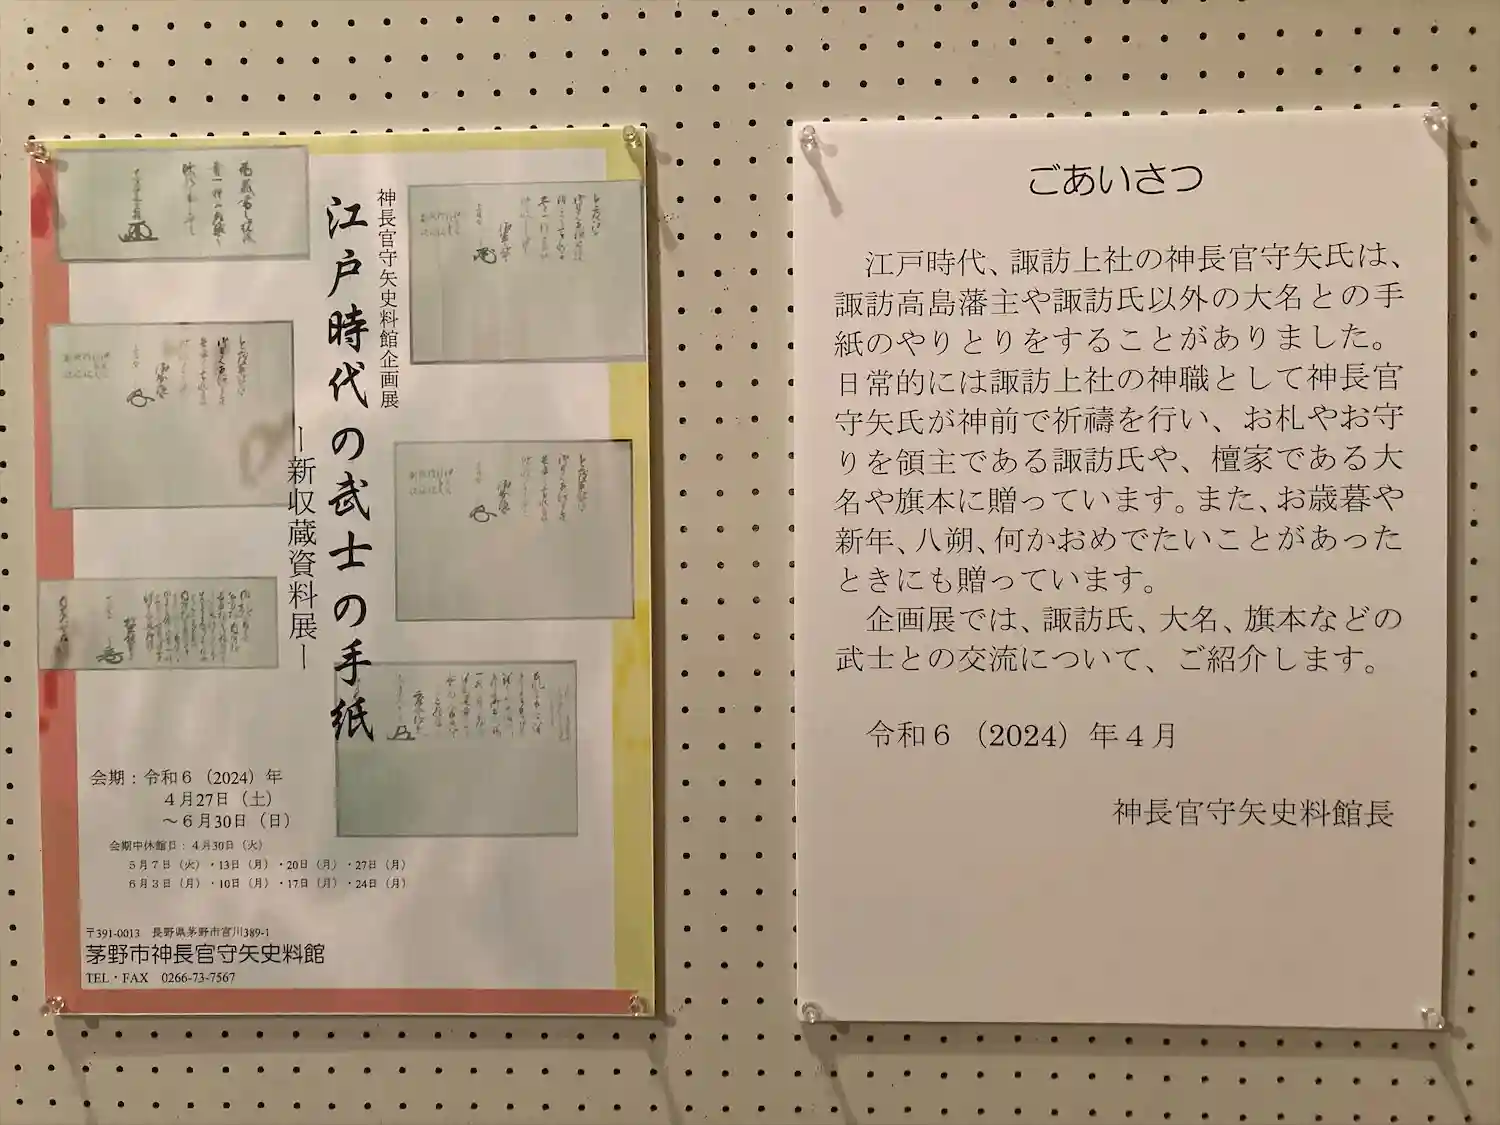 神長官守矢史料館企画展
江戸時代の武士の手紙
―新収蔵資料展―
会期：令和６（2024）年
４月27日（土）
～６月30日（日）
会期中休館日：４月30日（火）
５月７日（火）・13日（月）・20日（月）・27日（月）
６月３日（月）・10日（月）・17日（月）・24日（月）
〒391-0013　長野県茅野市宮川389-1
茅野市神長官守矢史料館
TEL・FAX　0266-73-7567
ごあいさつ
江戸時代、諏訪上社の神長官守矢氏は、
諏訪高島藩主や諏訪氏以外の大名との手
紙のやりとりをすることがありました。
日常的には諏訪上社の神職として神長官
守矢氏が神前で祈禱を行い、お札やお守
りを領主である諏訪氏や、檀家である大
名や旗本に贈っています。また、お歳暮や
新年、八朔、何かおめでたいことがあった
ときにも贈っています。
企画展では、諏訪氏、大名、旗本などの
武士との交流について、ご紹介します。
令和６（2024）年４月
神長官守矢史料館長